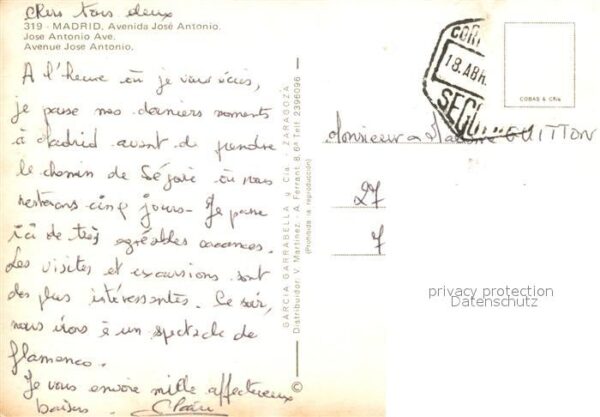 Chers tous deux
319 - MADRID, Avenida José Antonio.
Jose Antonio Ave.
Avenue Jose Antonio.
A l'heure où je vous écris,
je passe mes derniers moments
à Madrid avant de prendre
le chemin de Ségovie où nous
resterons cinq jours - Je passe
ici de très agréables vacances.
Les visites et excursions sont
des plus intéressantes. Ce soir,
nous irons à un spectacle de
flamenco.
Je vous envoie mille affectueux
baisers.
GARCIA GARRABELLA y Cía. - ZARAGOZA
Distribuidor: V. Martínez. - A. Ferrant. 8, 6º Telf. 2396096
(Prohibida la reproducción)
©
COR
18. ABR.
SEGO
COBAS & CÑIA
Monsieur et Madame GUITTON
27
7
privacy protection
Datenschutz